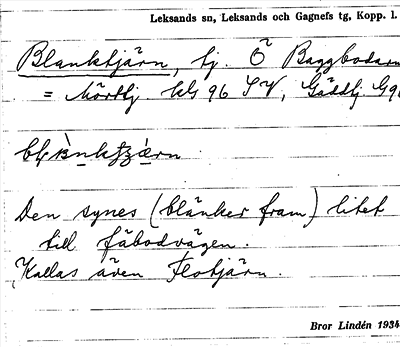 Leksands sn, Leksands och Gagnefs tg, Kopp. l.
Blanktjärn, tj. Ö Baggbodarn
= Mörttj. kG 96 SV, Gäddtj. G 96
Den synes (blänker fram) litet
till fäbodvägen.
Kallas även Flotjärn.
Bror Lindén 1934